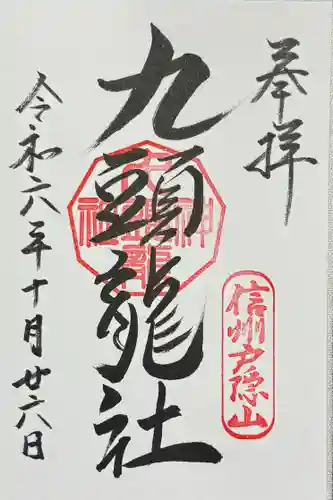 奉拝
信州戸隠山
九頭龍社
令和六年十月廿六日